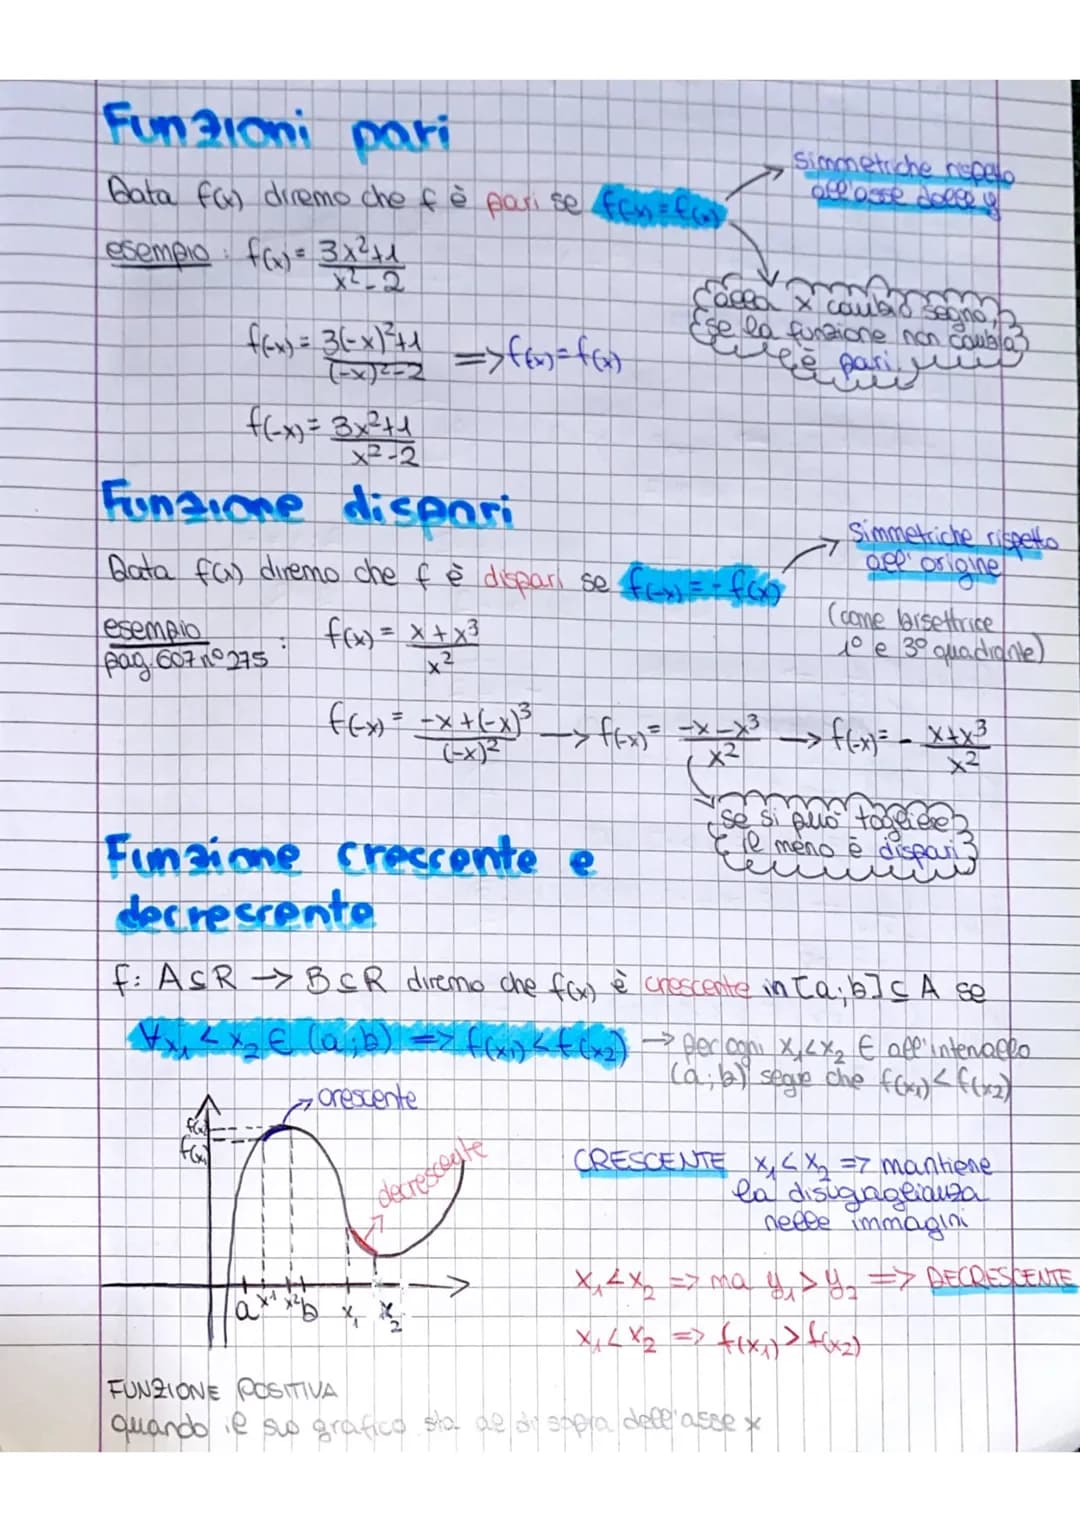 Funzioni pari
Data f(x) diremo che f è pari se f(-x)=f(x)
simmetriche rispetto
all'asse delle y
esempio : f(x) = 3x²+1 / x²-2
f(-x) = 3(-x)²+1 / (-x)²-2 => f(-x)=f(x)
alla x cambio segno,
se la funzione non cambia
è pari
f(-x) = 3x²+1 / x²-2
Funzione dispari
Data f(x) diremo che f è dispari se f(-x) = -f(x)
simmetriche rispetto
all'origine
(come bisettrice
1° e 3° quadrante)
esempio : f(x) = x+x³ / x²
pag.607 n°275
f(-x) = -x+(-x)³ / (-x)² → f(-x) = -x-x³ / x² → f(-x) = - x+x³ / x²
se si può togliere
il meno è dispari
Funzione crescente e
decrescente
f: A⊆R → B⊆R diremo che f(x) è crescente in [a;b]⊆A se
∀x₁<x₂∈(a;b) => f(x₁)<f(x₂) → per ogni x₁<x₂ ∈ all'intervallo
(a;b) segue che f(x₁)<f(x₂)
crescente
f(x₂)
f(x₁)
decrescente
a x1 x2 b x₁ x₂
CRESCENTE x₁<x₂ => mantiene
la disuguaglianza
nelle immagini
x₁<x₂ => ma y₁>y₂ => DECRESCENTE
x₁<x₂ => f(x₁)>f(x₂)
FUNZIONE POSITIVA
quando il suo grafico sta al di sopra dell'asse x